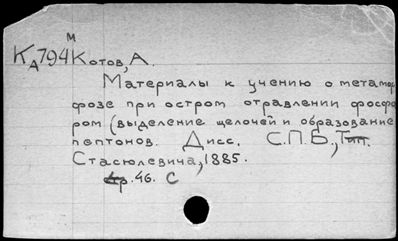 КД794М Котов, А.
Материалы к учению о метамор
фозе при остром отравлении фосфо
ром (выделение щелочей и образование
пептонов. Дисс. С.П.Б., Тип.
Стасюлевича, 1885.
46. С